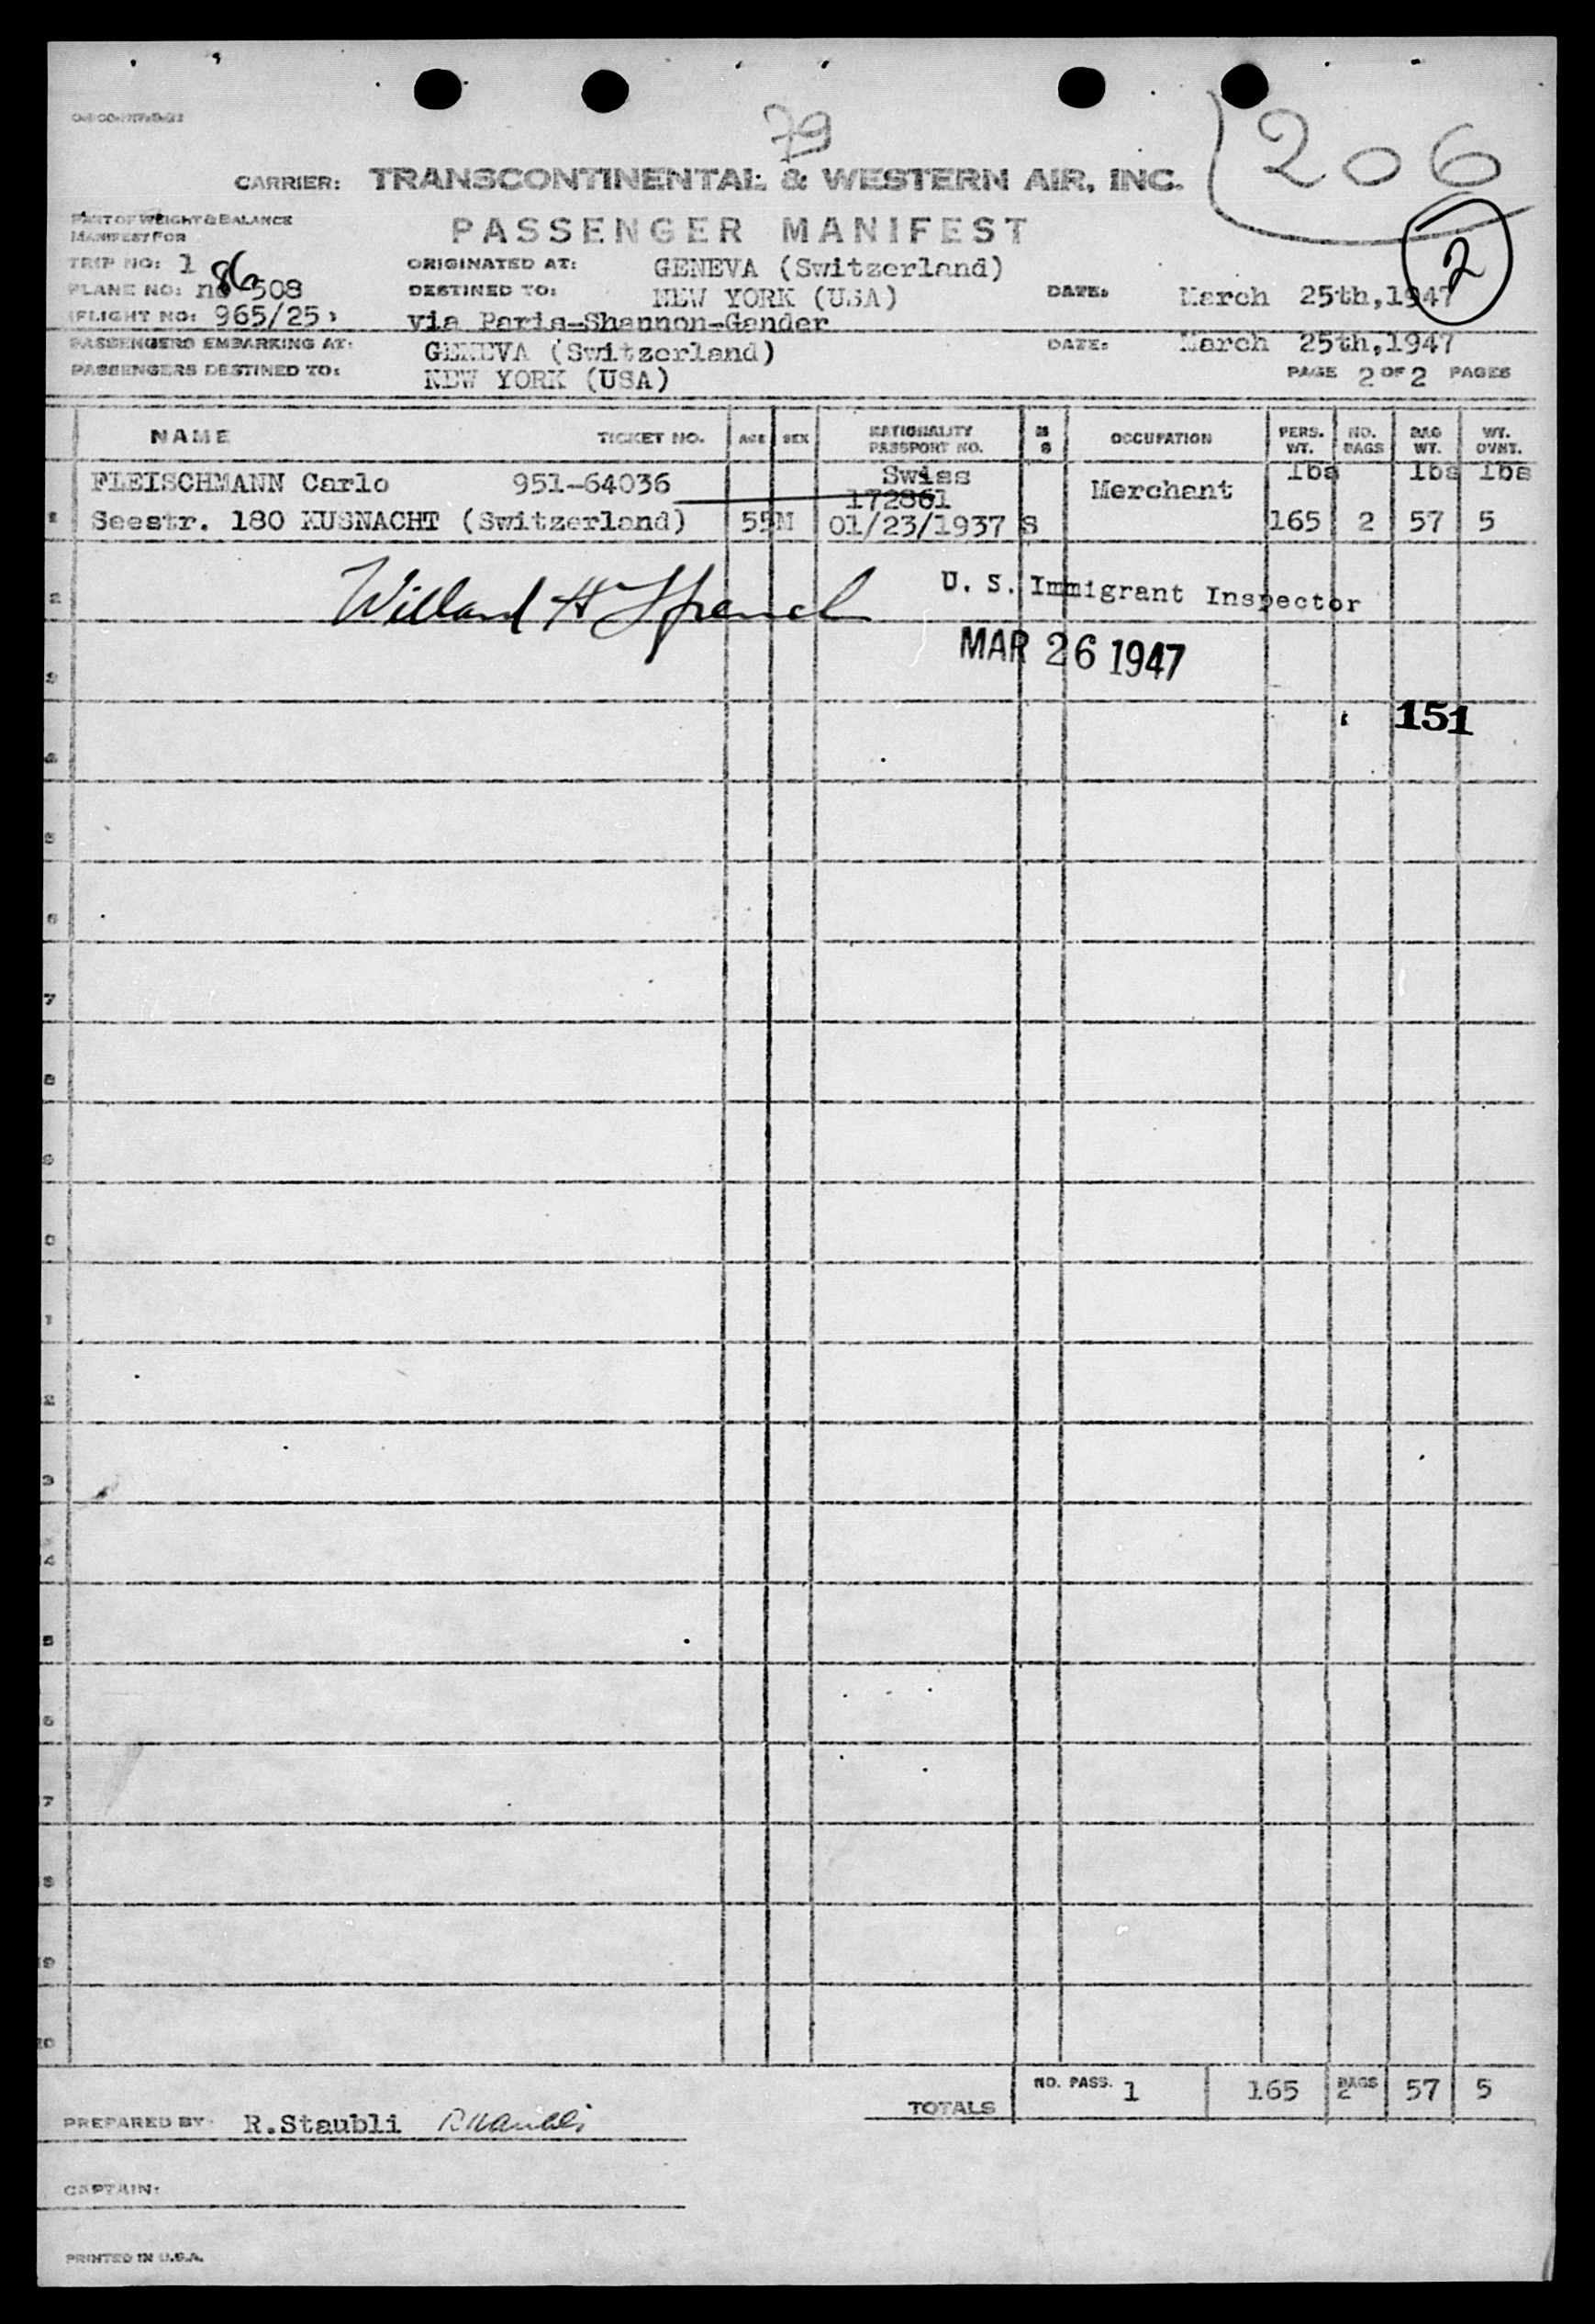 79
206
CARRIER: TRANSCONTINENTAL & WESTERN AIR, INC.
PART OF WEIGHT & BALANCE
MANIFEST FOR
PASSENGER MANIFEST
2
TRIP NO: 1
ORIGINATED AT: GENEVA (Switzerland)
PLANE NO: 86 508
DESTINED TO: NEW YORK (USA)
DATE: March 25th,1947
FLIGHT NO: 965/25
via Paris-Shannon-Gander
PASSENGERS EMBARKING AT: GENEVA (Switzerland)
DATE: March 25th,1947
PASSENGERS DESTINED TO: NEW YORK (USA)
PAGE 2 OF 2 PAGES
NAME TICKET NO. AGE SEX NATIONALITY PASSPORT NO. M S OCCUPATION PERS. WT. NO. BAGS BAG WT. WT. OVHT.
FLEISCHMANN Carlo 951-64036 Swiss Merchant lbs lbs lbs
172861
1 Seestr. 180 KUSNACHT (Switzerland) 55 M 01/23/1937 S 165 2 57 5
2 Willard H U. S. Immigrant Inspector
MAR 26 1947
3
151
4
5
6
7
8
9
0
1
2
3
4
5
6
7
8
19
20
TOTALS NO. PASS. 1 165 BAGS 2 57 5
PREPARED BY: R.Staubli RStaubli
CAPTAIN:
PRINTED IN U.S.A.